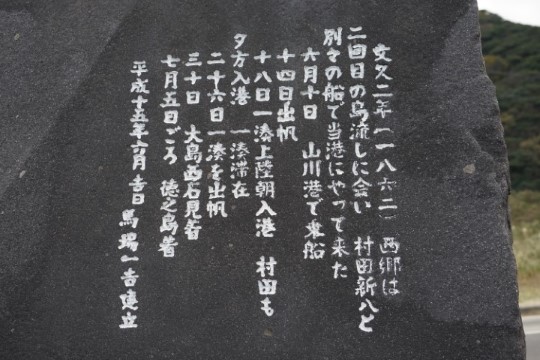 文久二年(一八六二) 西郷は
二回目の島流しに会い 村田新八と
別々の船で当港にやって来た
六月十日 山川港で乗船
十四日出帆
十八日一湊上陸朝入港 村田も
夕方入港 一湊滞在
二十六日一湊を出帆
三十日 大島西石見着
七月五日ごろ 徳之島着
平成十五年六月吉日 馬場一吉建立